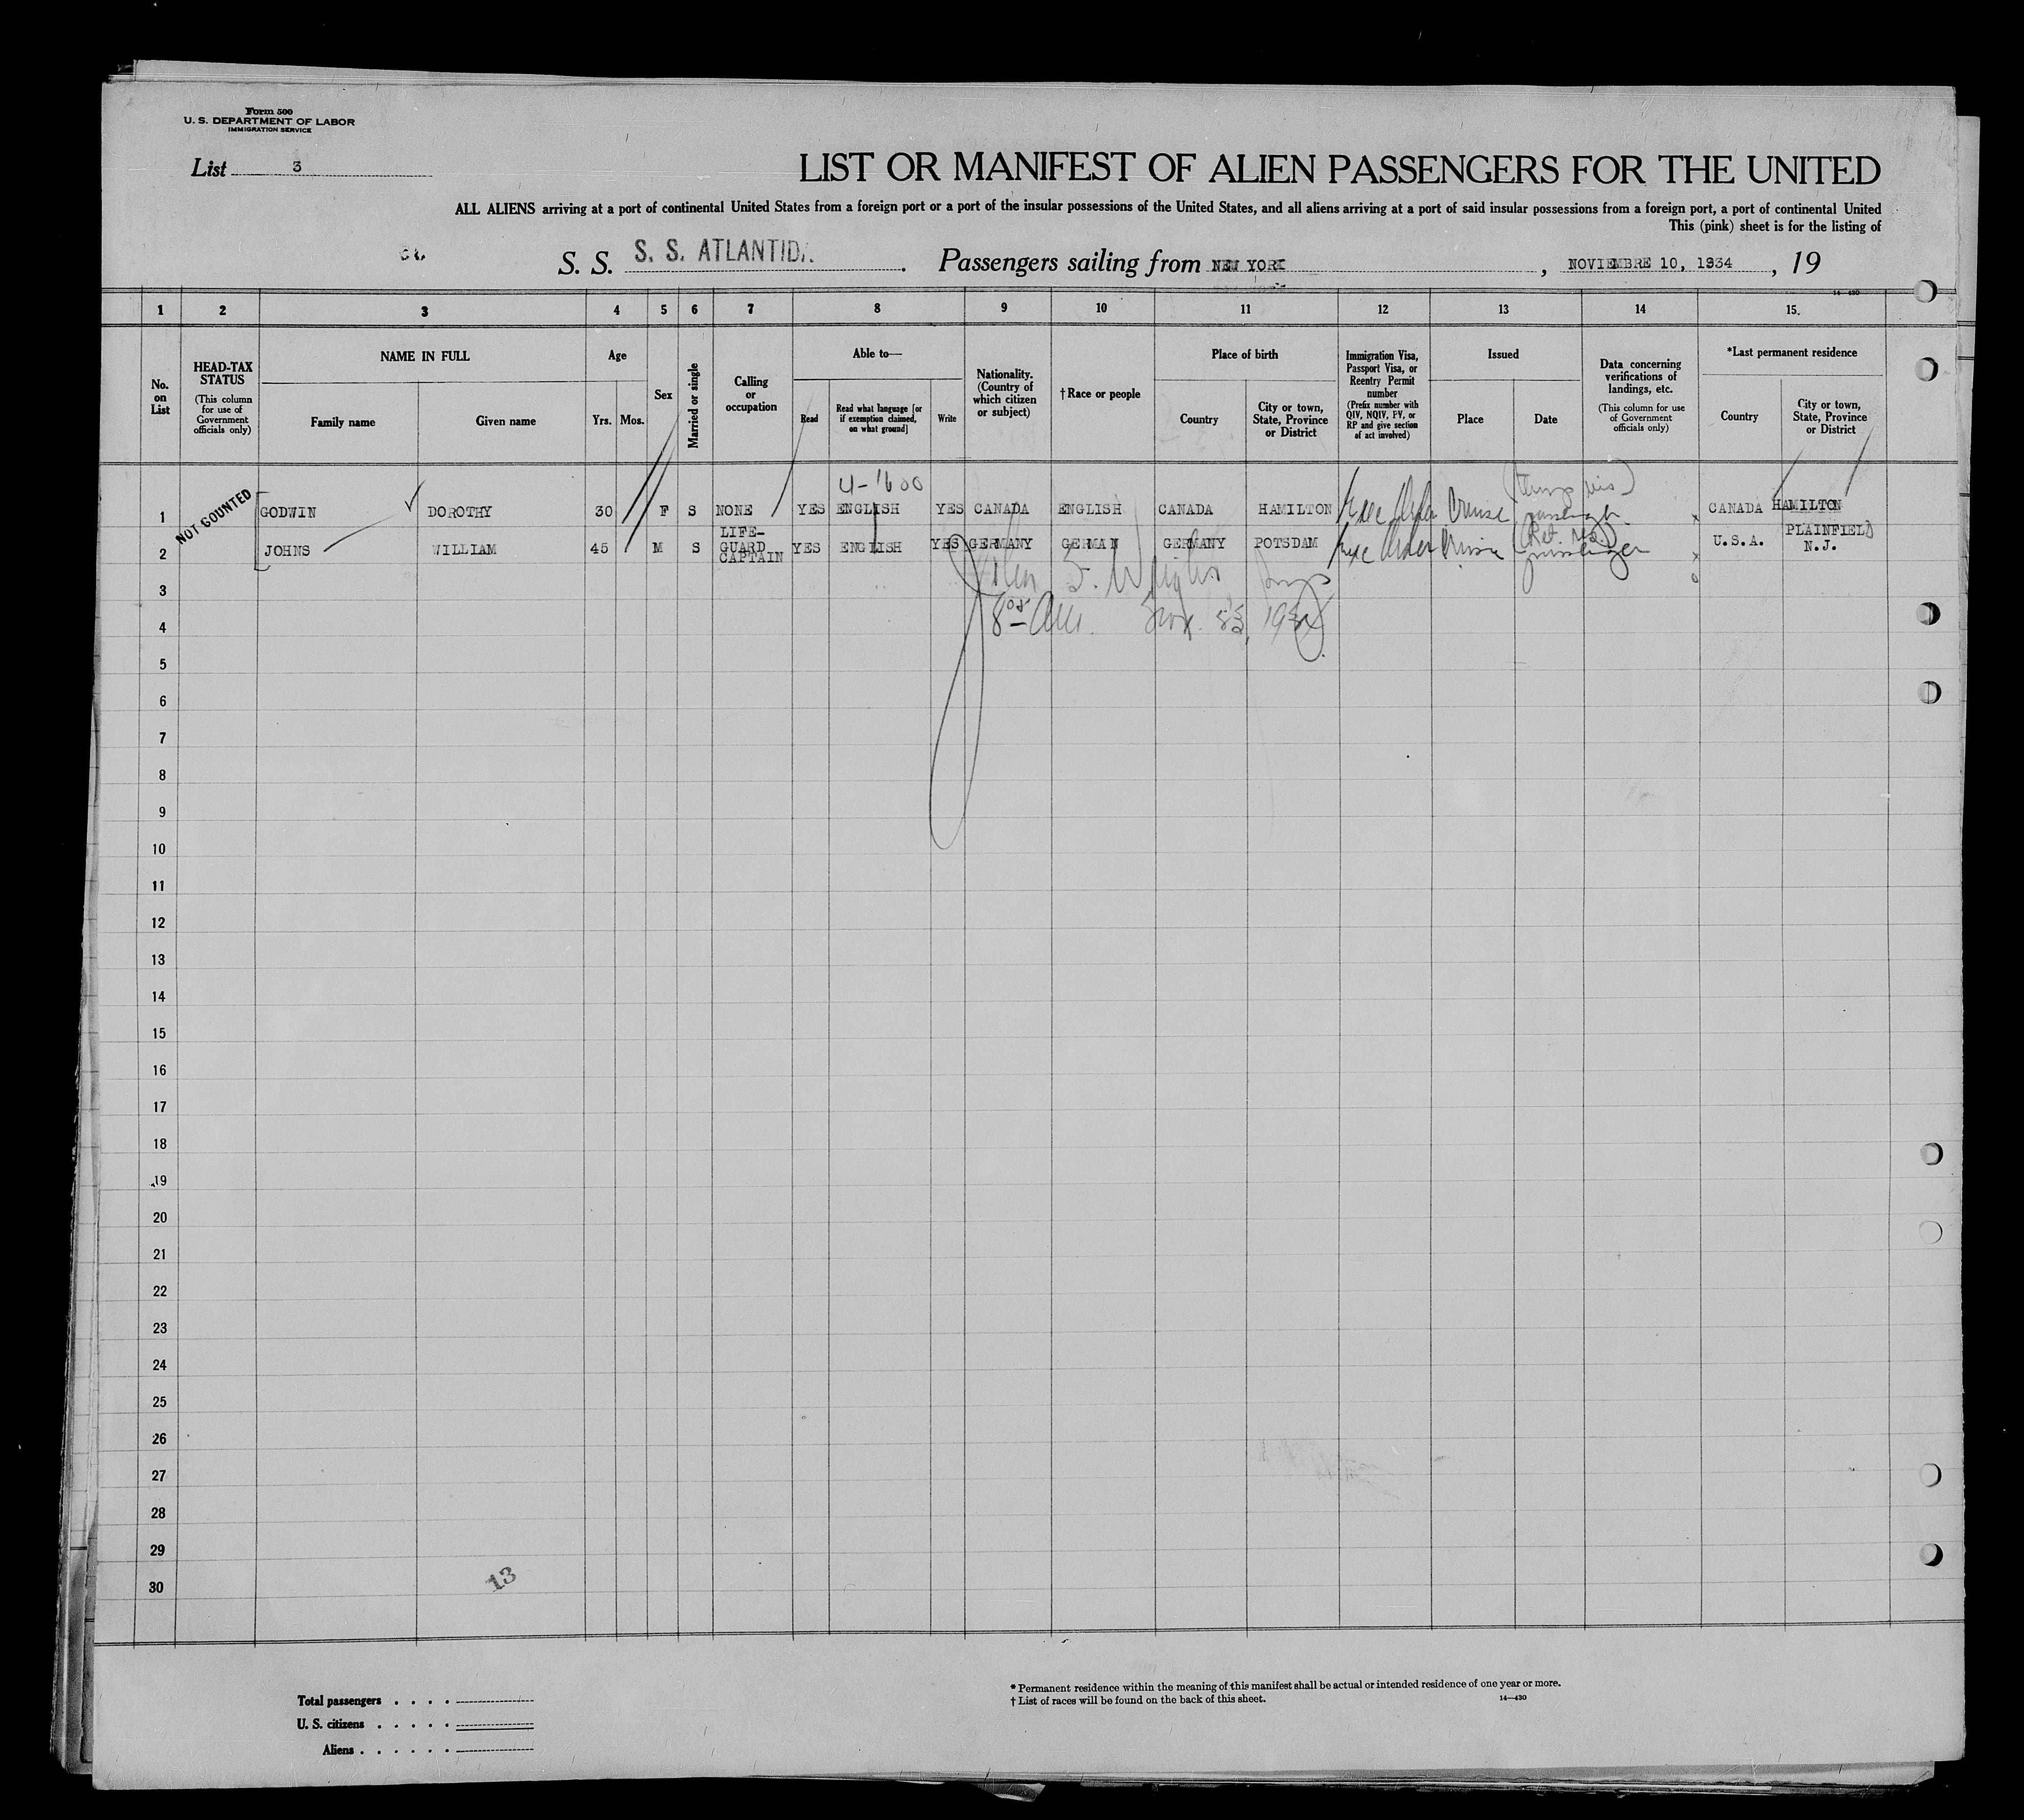 Form 500
U. S. DEPARTMENT OF LABOR
IMMIGRATION SERVICE
List 3
LIST OR MANIFEST OF ALIEN PASSENGERS FOR THE UNITED
ALL ALIENS arriving at a port of continental United States from a foreign port or a port of the insular possessions of the United States, and all aliens arriving at a port of said insular possessions from a foreign port, a port of continental United
This (pink) sheet is for the listing of
S. S. S. S. ATLANTIDA. Passengers sailing from NEW YORK, NOVIEMBRE 10, 1934, 19
14—430
1 2 3 4 5 6 7 8 9 10 11 12 13 14 15.
No. on List
HEAD-TAX STATUS
(This column for use of Government officials only)
NAME IN FULL
Family name
Given name
Age
Yrs.
Mos.
Sex
Married or single
Calling or occupation
Able to—
Read
Read what language [or if exemption claimed, on what ground]
Write
Nationality. (Country of which citizen or subject)
† Race or people
Place of birth
Country
City or town, State, Province or District
Immigration Visa, Passport Visa, or Reentry Permit number
(Prefix number with QIV, NQIV, PV, or RP and give section of act involved)
Issued
Place
Date
Data concerning verifications of landings, etc.
(This column for use of Government officials only)
*Last permanent residence
Country
City or town, State, Province or District
NOT COUNTED
4-1600
1 GODWIN DOROTHY 30 F S NONE YES ENGLISH YES CANADA ENGLISH CANADA HAMILTON Exec Order Cruise passenger CANADA HAMILTON
2 JOHNS WILLIAM 45 M S LIFE-GUARD CAPTAIN YES ENGLISH YES GERMANY GERMAN GERMANY POTSDAM Exec Order Cruise passenger U.S.A. PLAINFIELD N.J.
3
4
5
6
7
8
9
10
11
12
13
14
15
16
17
18
19
20
21
22
23
24
25
26
27
28
29
30
13
Total passengers . . . .
U. S. citizens . . . . .
Aliens . . . . . .
* Permanent residence within the meaning of this manifest shall be actual or intended residence of one year or more.
† List of races will be found on the back of this sheet.
14—430